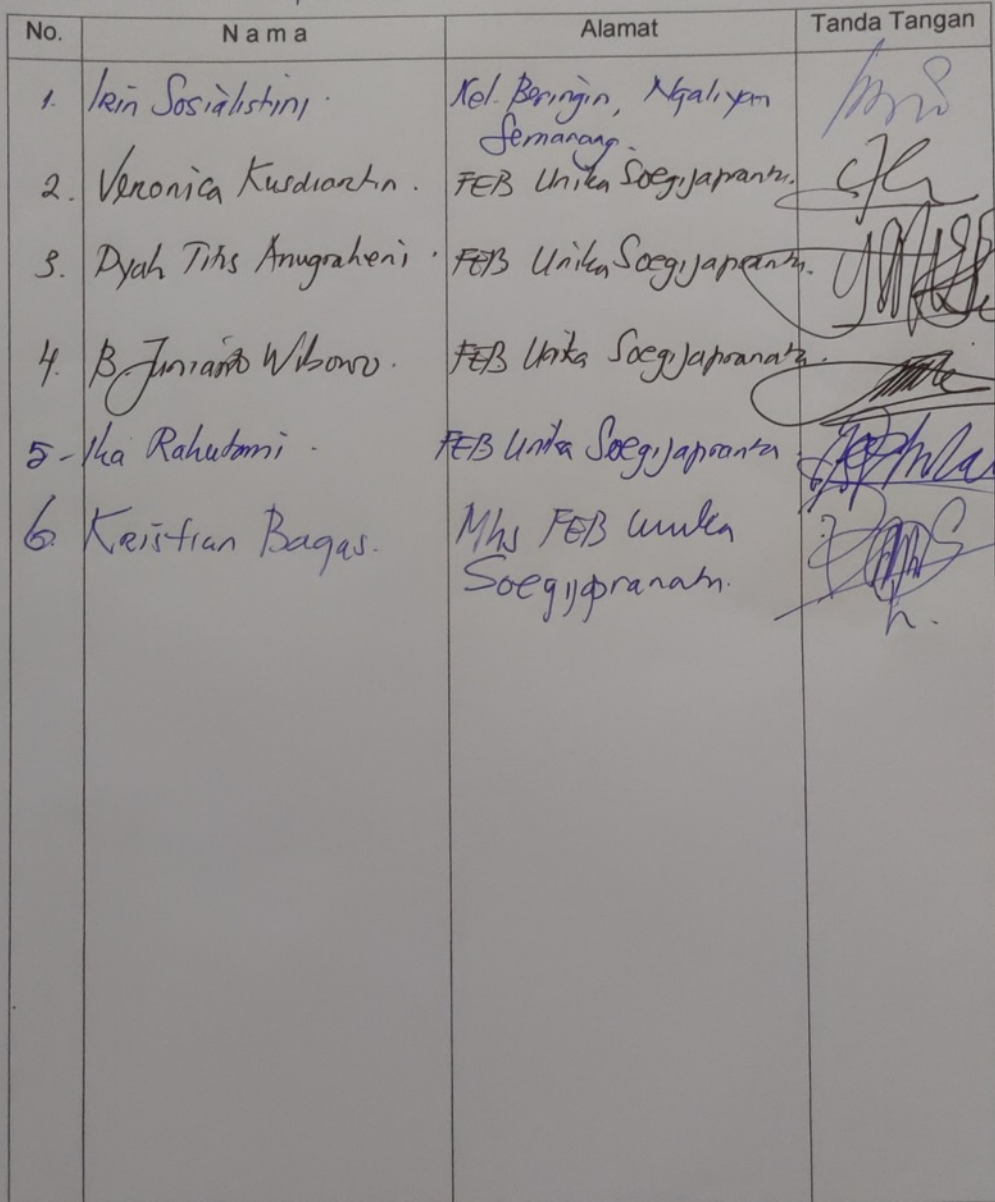 No. Nama Alamat Tanda Tangan
1. Irin Sosialistini. Kel. Beringin, Ngaliyan
Semarang.
2. Veronica Kusdiartin. FEB Unika Soegijapranta.
3. Dyah Titis Anugraheni. FEB Unika Soegijapranta.
4. B. Junianto Wibowo. FEB Unika Soegijapranata.
5- Ika Rahutami. FEB Unika Soegijapranta
6. Kristian Bagas. Mhs FEB Unika
Soegijapranata.